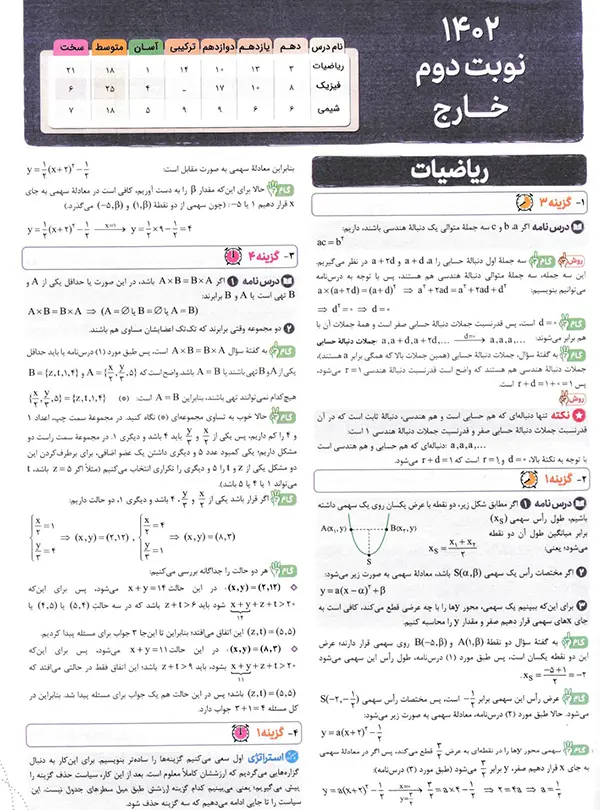 ۱۴۰۲
نوبت دوم
خارج
نام درس دهم یازدهم دوازدهم ترکیبی آسان متوسط سخت
ریاضیات ۳ ۱۳ ۱۰ ۱۴ ۱ ۱۸ ۲۱
فیزیک ۸ ۱۰ ۱۷ - ۴ ۲۵ ۶
شیمی ۶ ۶ ۹ ۹ ۵ ۱۸ ۷
ریاضیات
۱- گزینه ۳
درس نامه اگر a، b و c سه جملهٔ متوالی یک دنبالهٔ هندسی باشند، داریم:
ac = b²
روش ۱ گام ۱ سه جملهٔ اول دنبالهٔ حسابی را a، a+d و a+2d در نظر می‌گیریم.
این سه جمله، سه جملهٔ متوالی دنبالهٔ هندسی هم هستند، پس با توجه به درس‌نامه
می‌توانیم بنویسیم: a×(a+2d) = (a+d)² ⇒ a²+2ad = a²+2ad+d²
⇒ d² = 0 ⇒ d = 0
گام ۲ d = 0 است، پس قدرنسبت جملات دنبالهٔ حسابی صفر است و همهٔ جملات آن با
هم برابر می‌شوند: a, a+d, a+2d, ... —d=0→ a, a, a, ... جملات دنبالهٔ حسابی
گام ۳ به گفتهٔ سؤال، جملات دنبالهٔ حسابی (همین جملات بالا که همگی برابر a هستند)،
جملات دنبالهٔ هندسی هم هستند که واضح است قدرنسبت دنبالهٔ هندسی r = 1 می‌شود،
پس r + d = 1 + 0 = 1 است.
روش ۲
نکته تنها دنباله‌ای که هم حسابی است و هم هندسی، دنبالهٔ ثابت است که در آن
قدرنسبت جملات دنبالهٔ حسابی صفر و قدرنسبت جملات دنبالهٔ هندسی ۱ است:
a, a, a, ... :دنباله‌ای که هم حسابی و هم هندسی است
با توجه به نکتهٔ بالا، d = 0 و r = 1 است که r + d = 1 می‌شود.
۲- گزینه ۱
درس نامه ۱ اگر مطابق شکل زیر، دو نقطه با عرض یکسان روی یک سهمی داشته
باشیم، طول رأس سهمی (x_S)
برابر میانگین طول آن دو نقطه
می‌شود؛ یعنی: x_S = (x₁+x₂)/2
A(x₁,y) B(x₂,y)
S
۲ اگر مختصات رأس یک سهمی S(α,β) باشد، معادلهٔ سهمی به صورت زیر می‌شود:
y = a(x−α)² + β
۳ برای این‌که ببینیم یک سهمی، محور yها را با چه عرضی قطع می‌کند، کافی است به
جای xهای سهمی قرار دهیم صفر و مقدار y را محاسبه کنیم.
گام ۱ به گفتهٔ سؤال دو نقطهٔ A(1,β) و B(−5,β) روی سهمی قرار دارند؛ عرض
این دو نقطه یکسان است، پس طبق مورد (۱) درس‌نامه، طول رأس این سهمی می‌شود
x_S = (−5+1)/2 = −2.
گام ۲ عرض رأس این سهمی برابر −1/2 است، پس مختصات رأس سهمی S(−2,−1/2)
می‌شود. حالا طبق مورد (۲) درس‌نامه، معادلهٔ سهمی به صورت زیر می‌شود:
y = a(x+2)² − 1/2
گام ۳ سهمی محور yها را در نقطه‌ای به عرض 3/2 قطع می‌کند، پس اگر در معادلهٔ سهمی
به جای x قرار دهیم صفر، y برابر 3/2 می‌شود (طبق مورد (۳) درس‌نامه):
y = a(x+2)² − 1/2 —x=0, y=3/2→ 3/2 = a×4 − 1/2 ⇒ 2 = 4a ⇒ a = 1/2
بنابراین معادلهٔ سهمی به صورت مقابل است: y = 1/2(x+2)² − 1/2
گام ۴ حالا برای این‌که مقدار β را به دست آوریم، کافی است در معادلهٔ سهمی به جای
x قرار دهیم ۱ یا ۵-: (چون سهمی از دو نقطهٔ (1,β) و (−5,β) می‌گذرد.)
y = 1/2(x+2)² − 1/2 —x=1→ y = 1/2×9 − 1/2 = 4
۳- گزینه ۴
درس نامه ۱ اگر A×B = B×A باشد، در این صورت یا حداقل یکی از A و
B تهی است یا A و B برابرند:
A×B = B×A ⇒ (A=∅ یا B=∅ یا A=B)
۲ دو مجموعه وقتی برابرند که تک‌تک اعضایشان مساوی هم باشند.
گام ۱ به گفتهٔ سؤال A×B = B×A است، پس طبق مورد (۱) درس‌نامه یا باید حداقل
یکی از A و B تهی باشند یا B = A باشد. واضح است که A = {x/2, y/3, 5} و B = {z,t,1,4}
هیچ‌کدام نمی‌توانند تهی باشند، بنابراین B = A است: (*) {x/2, y/3, 5} = {z,t,1,4}
گام ۲ حالا خوب به تساوی مجموعه‌ای (*) نگاه کنید. در مجموعهٔ سمت چپ، اعداد ۱
و ۴ را کم داریم، پس یکی از x/2 و y/3 باید ۴ باشد و دیگری ۱. در مجموعهٔ سمت راست دو
مشکل داریم؛ یکی کمبود عدد ۵ و دیگری داشتن یک عضو اضافی، برای برطرف‌کردن این
دو مشکل یکی از z و t را ۵ و دیگری را تکراری انتخاب می‌کنیم (مثلاً اگر z = 5 باشد، t
می‌تواند ۱ یا ۴ یا ۵ باشد).
گام ۳ اگر قرار باشد یکی از x/2 و y/3، ۴ باشد و دیگری ۱، دو حالت داریم:
{x/2 = 1, y/3 = 4 ⇒ (x,y) = (2,12) , {x/2 = 4, y/3 = 1 ⇒ (x,y) = (8,3)
گام ۴ هر دو حالت را جداگانه بررسی می‌کنیم:
(x,y) = (2,12): در این حالت x+y = 14 می‌شود، پس برای این‌که
x+y+z+t > 20 شود باید z+t > 6 باشد که در سه حالت (5,4) یا (4,5) یا
14
(z,t) = (5,5) این اتفاق می‌افتد؛ بنابراین تا این‌جا ۳ جواب برای مسئله پیدا کردیم.
(x,y) = (8,3): در این حالت x+y = 11 می‌شود، پس برای این‌که
x+y+z+t > 20 بشود، باید z+t > 9 باشد؛ این اتفاق فقط در حالتی می‌افتد که
11
(z,t) = (5,5) باشد؛ پس در این حالت هم یک جواب برای مسئله پیدا شد. بنابراین در
کل مسئله ۳+۱=۴ جواب دارد.
۴- گزینه ۱
استراتژی اول سعی می‌کنیم گزینه‌ها را ساده‌تر بنویسیم. برای این‌کار به دنبال
گزاره‌هایی می‌گردیم که ارزششان کاملاً معلوم است. بعد از این کار، سیاست حذف گزینه را
پیش می‌گیریم؛ یعنی می‌بینیم کدام گزینه ارزشش طبق میل سطرهای جدول نیست. این
سیاست را تا جایی ادامه می‌دهیم که سه گزینه حذف شود.